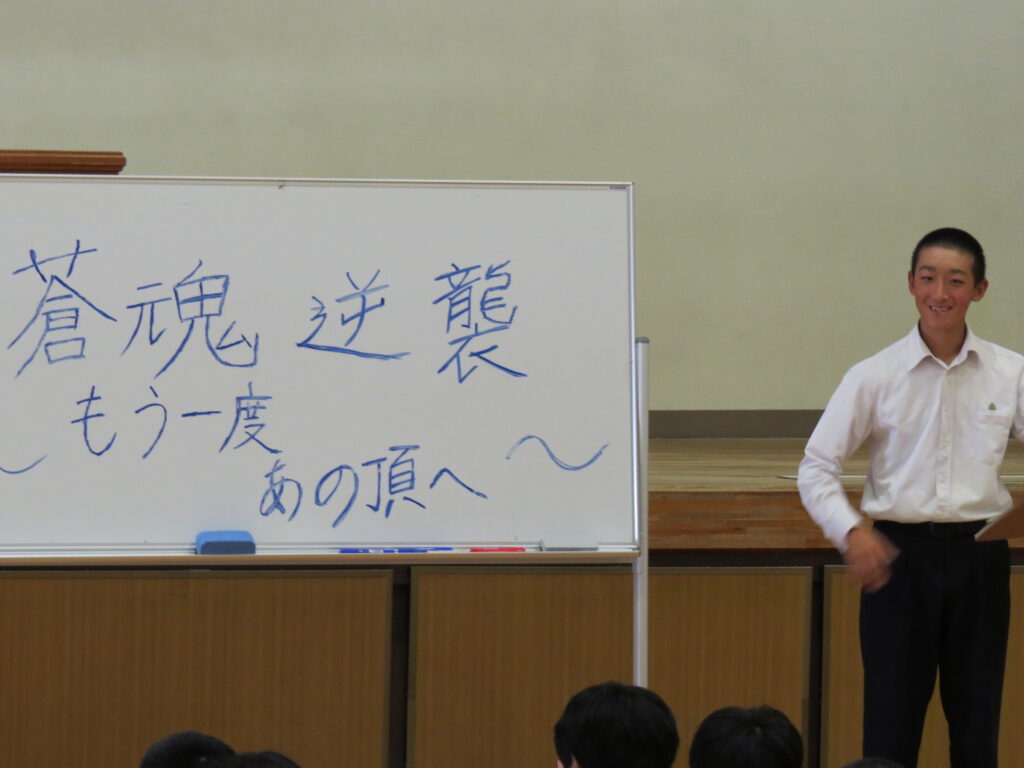 蒼魂 逆襲
〜もう一度
あの頂へ〜